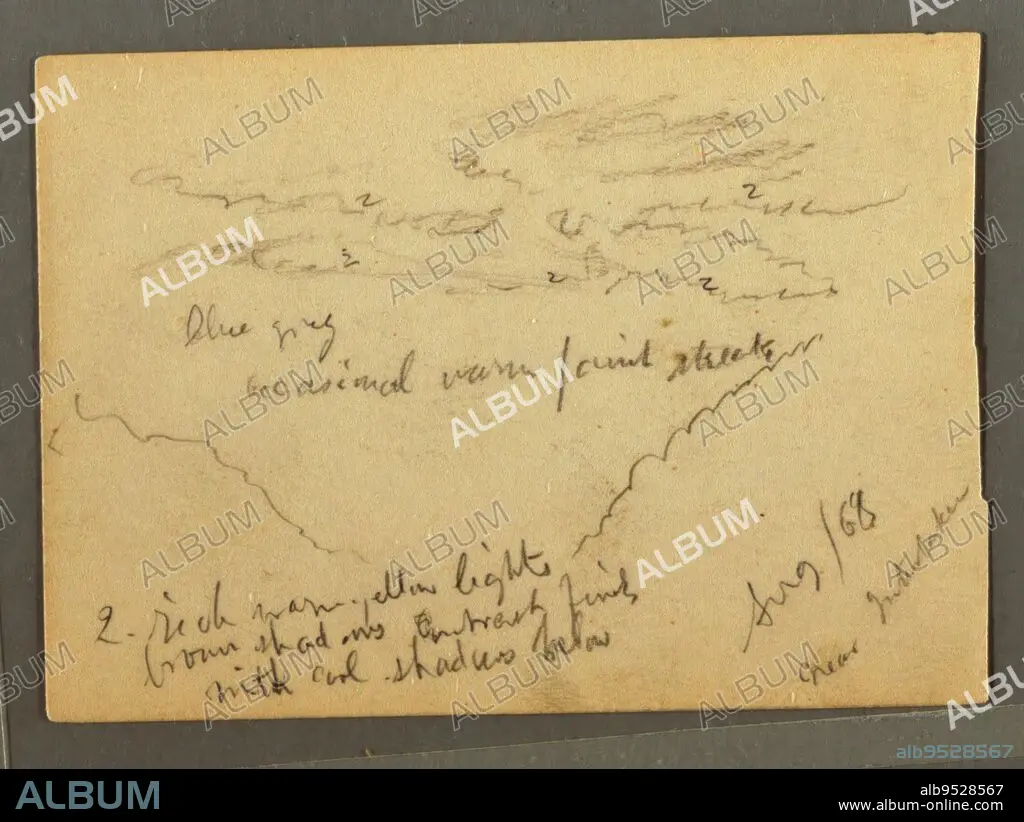 2 2
2 2 2
blue grey
occasional warm faint streaks
2. rich warm yellow lights
brown shadows contrast finely
with cool shadows below
Aug/68
near
ALBUM
alb9528567
ALBUM
alb9528567
www.album-online.com